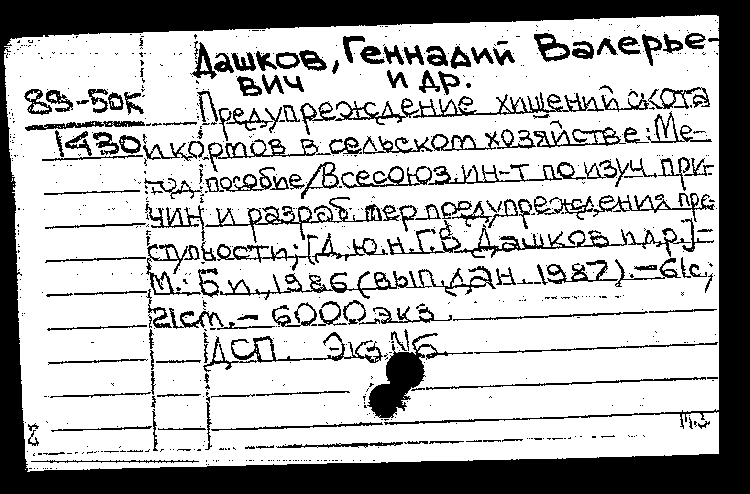 Дашков, Геннадий Валерье-
вич и др.
89-50к
1430
Предупреждение хищений скота
и кормов в сельском хозяйстве: Ме-
тод. пособие/Всесоюз. ин-т по изуч. при-
чин и разраб. мер предупреждения пре
ступности; [Д.ю.н. Г.В. Дашков и др.]-
М.: Б.и., 1986 (вып. дан. 1987). - 61с.;
21см. - 6000 экз.
ДСП. Экз №б.